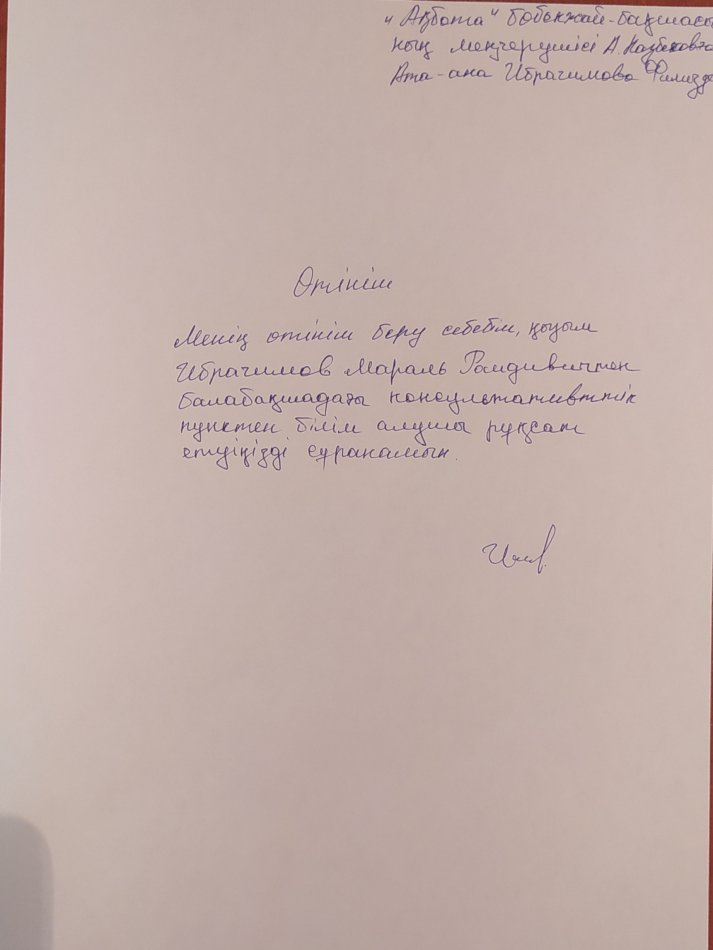 "Ақбота" бөбекжай-бақшасы
ның меңгерушісі А. Казбековғ
Ата-ана Ибрагимова Физизд
Өтініш
Менің өтініш беру себебім, қызым
Ибрагимов Мараль Рашдивичтен
балабақшадағы консультативттік
пунктен білім алушы рұқсат
етуіңізді сұранамын.